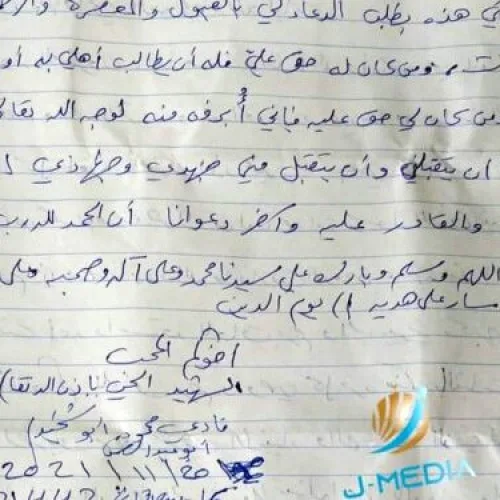 ي هذه بطلب الدعاء لي بالقبول والمغفرة والر
ت، ومن كان له حق علي فله أن يطالب أهلي به أو
من كان لي حق عليه فإني أُبرئه منه لوجه الله تعا
ان يتقبلني وأن يتقبل مني جهدي وجهادي
والقادر عليه وآخر دعوانا أن الحمد لله رب
اللهم وسلم وبارك على سيدنا محمد وعلى آله وصحبه وعلى
سار على هديه إلى يوم الدين
أخوكم المحب
الشهيد الحي بإذن الله تعا
فادي محمود أبو شخيدم
2021/11/20
J-MEDIA